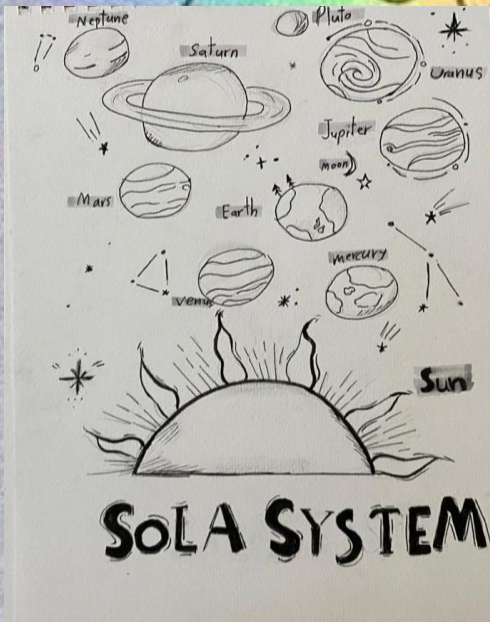 Neptune
Pluto
Saturn
Uranus
Jupiter
moon
Mars
Earth
mercury
Venus
Sun
SOLA SYSTEM